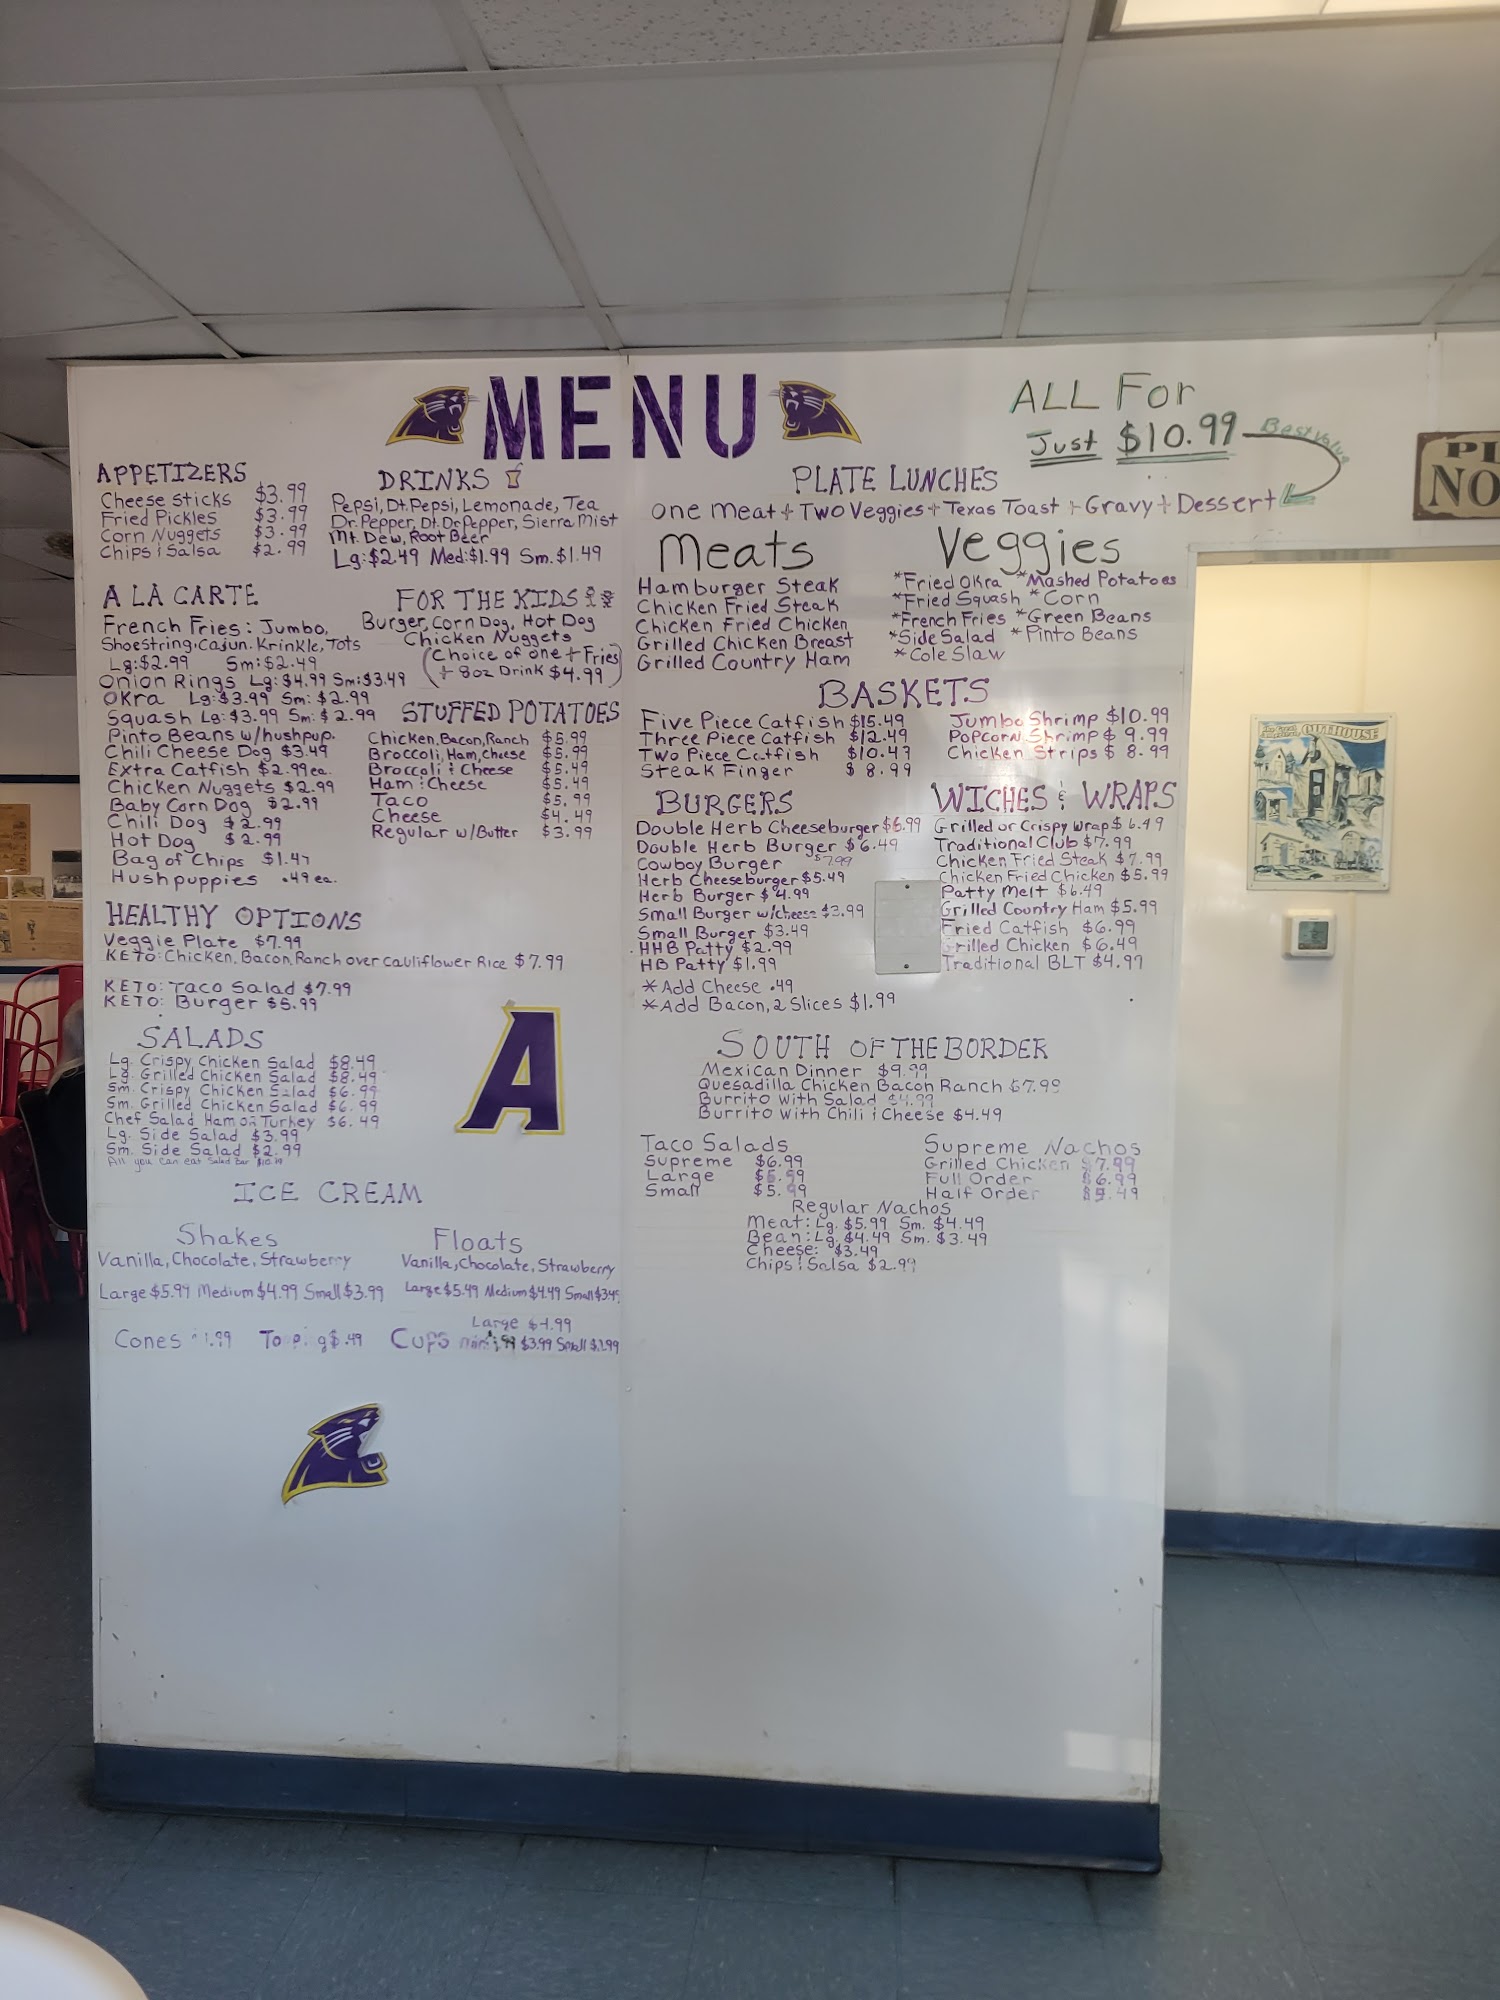 MENU
ALL For
Just $10.99
Best Value
APPETIZERS
Cheese Sticks $3.99
Fried Pickles $3.99
Corn Nuggets $3.99
Chips & Salsa $2.99
DRINKS
Pepsi, Dt. Pepsi, Lemonade, Tea
Dr. Pepper, Dt. Dr Pepper, Sierra Mist
Mt. Dew, Root Beer
Lg: $2.49 Med: $1.99 Sm. $1.49
A LA CARTE
French Fries: Jumbo,
Shoestring, Cajun, Krinkle, Tots
Lg: $2.99 Sm: $2.49
Onion Rings Lg: $4.99 Sm: $3.49
Okra Lg: $3.99 Sm: $2.99
Squash Lg: $3.99 Sm: $2.99
Pinto Beans w/hushpup.
Chili Cheese Dog $3.49
Extra Catfish $2.99 ea.
Chicken Nuggets $2.99
Baby Corn Dog $2.99
Chili Dog $2.99
Hot Dog $2.99
Bag of Chips $1.47
Hushpuppies .49 ea.
FOR THE KIDS
Burger, Corn Dog, Hot Dog
Chicken Nuggets
(Choice of one + Fries
+ 8oz Drink $4.99)
STUFFED POTATOES
Chicken, Bacon, Ranch $5.99
Broccoli, Ham, Cheese $5.99
Broccoli & Cheese $5.49
Ham & Cheese $5.49
Taco $5.99
Cheese $4.49
Regular w/Butter $3.99
HEALTHY OPTIONS
Veggie Plate $7.99
KETO: Chicken, Bacon, Ranch over Cauliflower Rice $7.99
KETO: Taco Salad $7.99
KETO: Burger $5.99
SALADS
Lg. Crispy Chicken Salad $8.49
Lg. Grilled Chicken Salad $8.49
Sm. Crispy Chicken Salad $6.99
Sm. Grilled Chicken Salad $6.99
Chef Salad Ham or Turkey $6.49
Lg. Side Salad $3.99
Sm. Side Salad $2.99
All you can eat Salad Bar
A
ICE CREAM
Shakes
Vanilla, Chocolate, Strawberry
Large $5.99 Medium $4.99 Small $3.99
Floats
Vanilla, Chocolate, Strawberry
Large $5.49 Medium $4.49 Small $3.49
Cones 1.99
$.49
Large
Cups $3.99 Small
PLATE LUNCHES
One Meat + Two Veggies + Texas Toast + Gravy + Dessert
Meats
Hamburger Steak
Chicken Fried Steak
Chicken Fried Chicken
Grilled Chicken Breast
Grilled Country Ham
Veggies
*Fried Okra *Mashed Potatoes
*Fried Squash *Corn
*French Fries *Green Beans
*Side Salad *Pinto Beans
*Cole Slaw
BASKETS
Five Piece Catfish $15.49
Three Piece Catfish $12.49
Two Piece Catfish $10.47
Steak Finger $8.99
Jumbo Shrimp $10.99
Popcorn Shrimp $9.99
Chicken Strips $8.99
BURGERS
Double Herb Cheeseburger $6.99
Double Herb Burger $6.49
Cowboy Burger $7.99
Herb Cheeseburger $5.49
Herb Burger $4.99
Small Burger w/cheese $3.99
Small Burger $3.49
HHB Patty $2.99
HB Patty $1.99
*Add Cheese .49
*Add Bacon, 2 Slices $1.99
WICHES & WRAPS
Grilled or Crispy Wrap $6.49
Traditional Club $7.99
Chicken Fried Steak $7.99
Chicken Fried Chicken $5.99
Patty Melt $6.49
Grilled Country Ham $5.99
Fried Catfish $6.99
Grilled Chicken $6.49
Traditional BLT $4.97
SOUTH OF THE BORDER
Mexican Dinner $9.99
Quesadilla Chicken Bacon Ranch $7.99
Burrito With Salad $4.99
Burrito With Chili & Cheese $4.49
Taco Salads
Supreme $6.99
Large
Small $5.99
Supreme Nachos
Grilled Chicken $7.99
Full Order $6.99
Half Order
Regular Nachos
Meat: Lg. $5.99 Sm. $4.49
Bean: Lg. $4.49 Sm. $3.49
Cheese: $3.49
Chips & Salsa $2.99
OUTHOUSE
NO